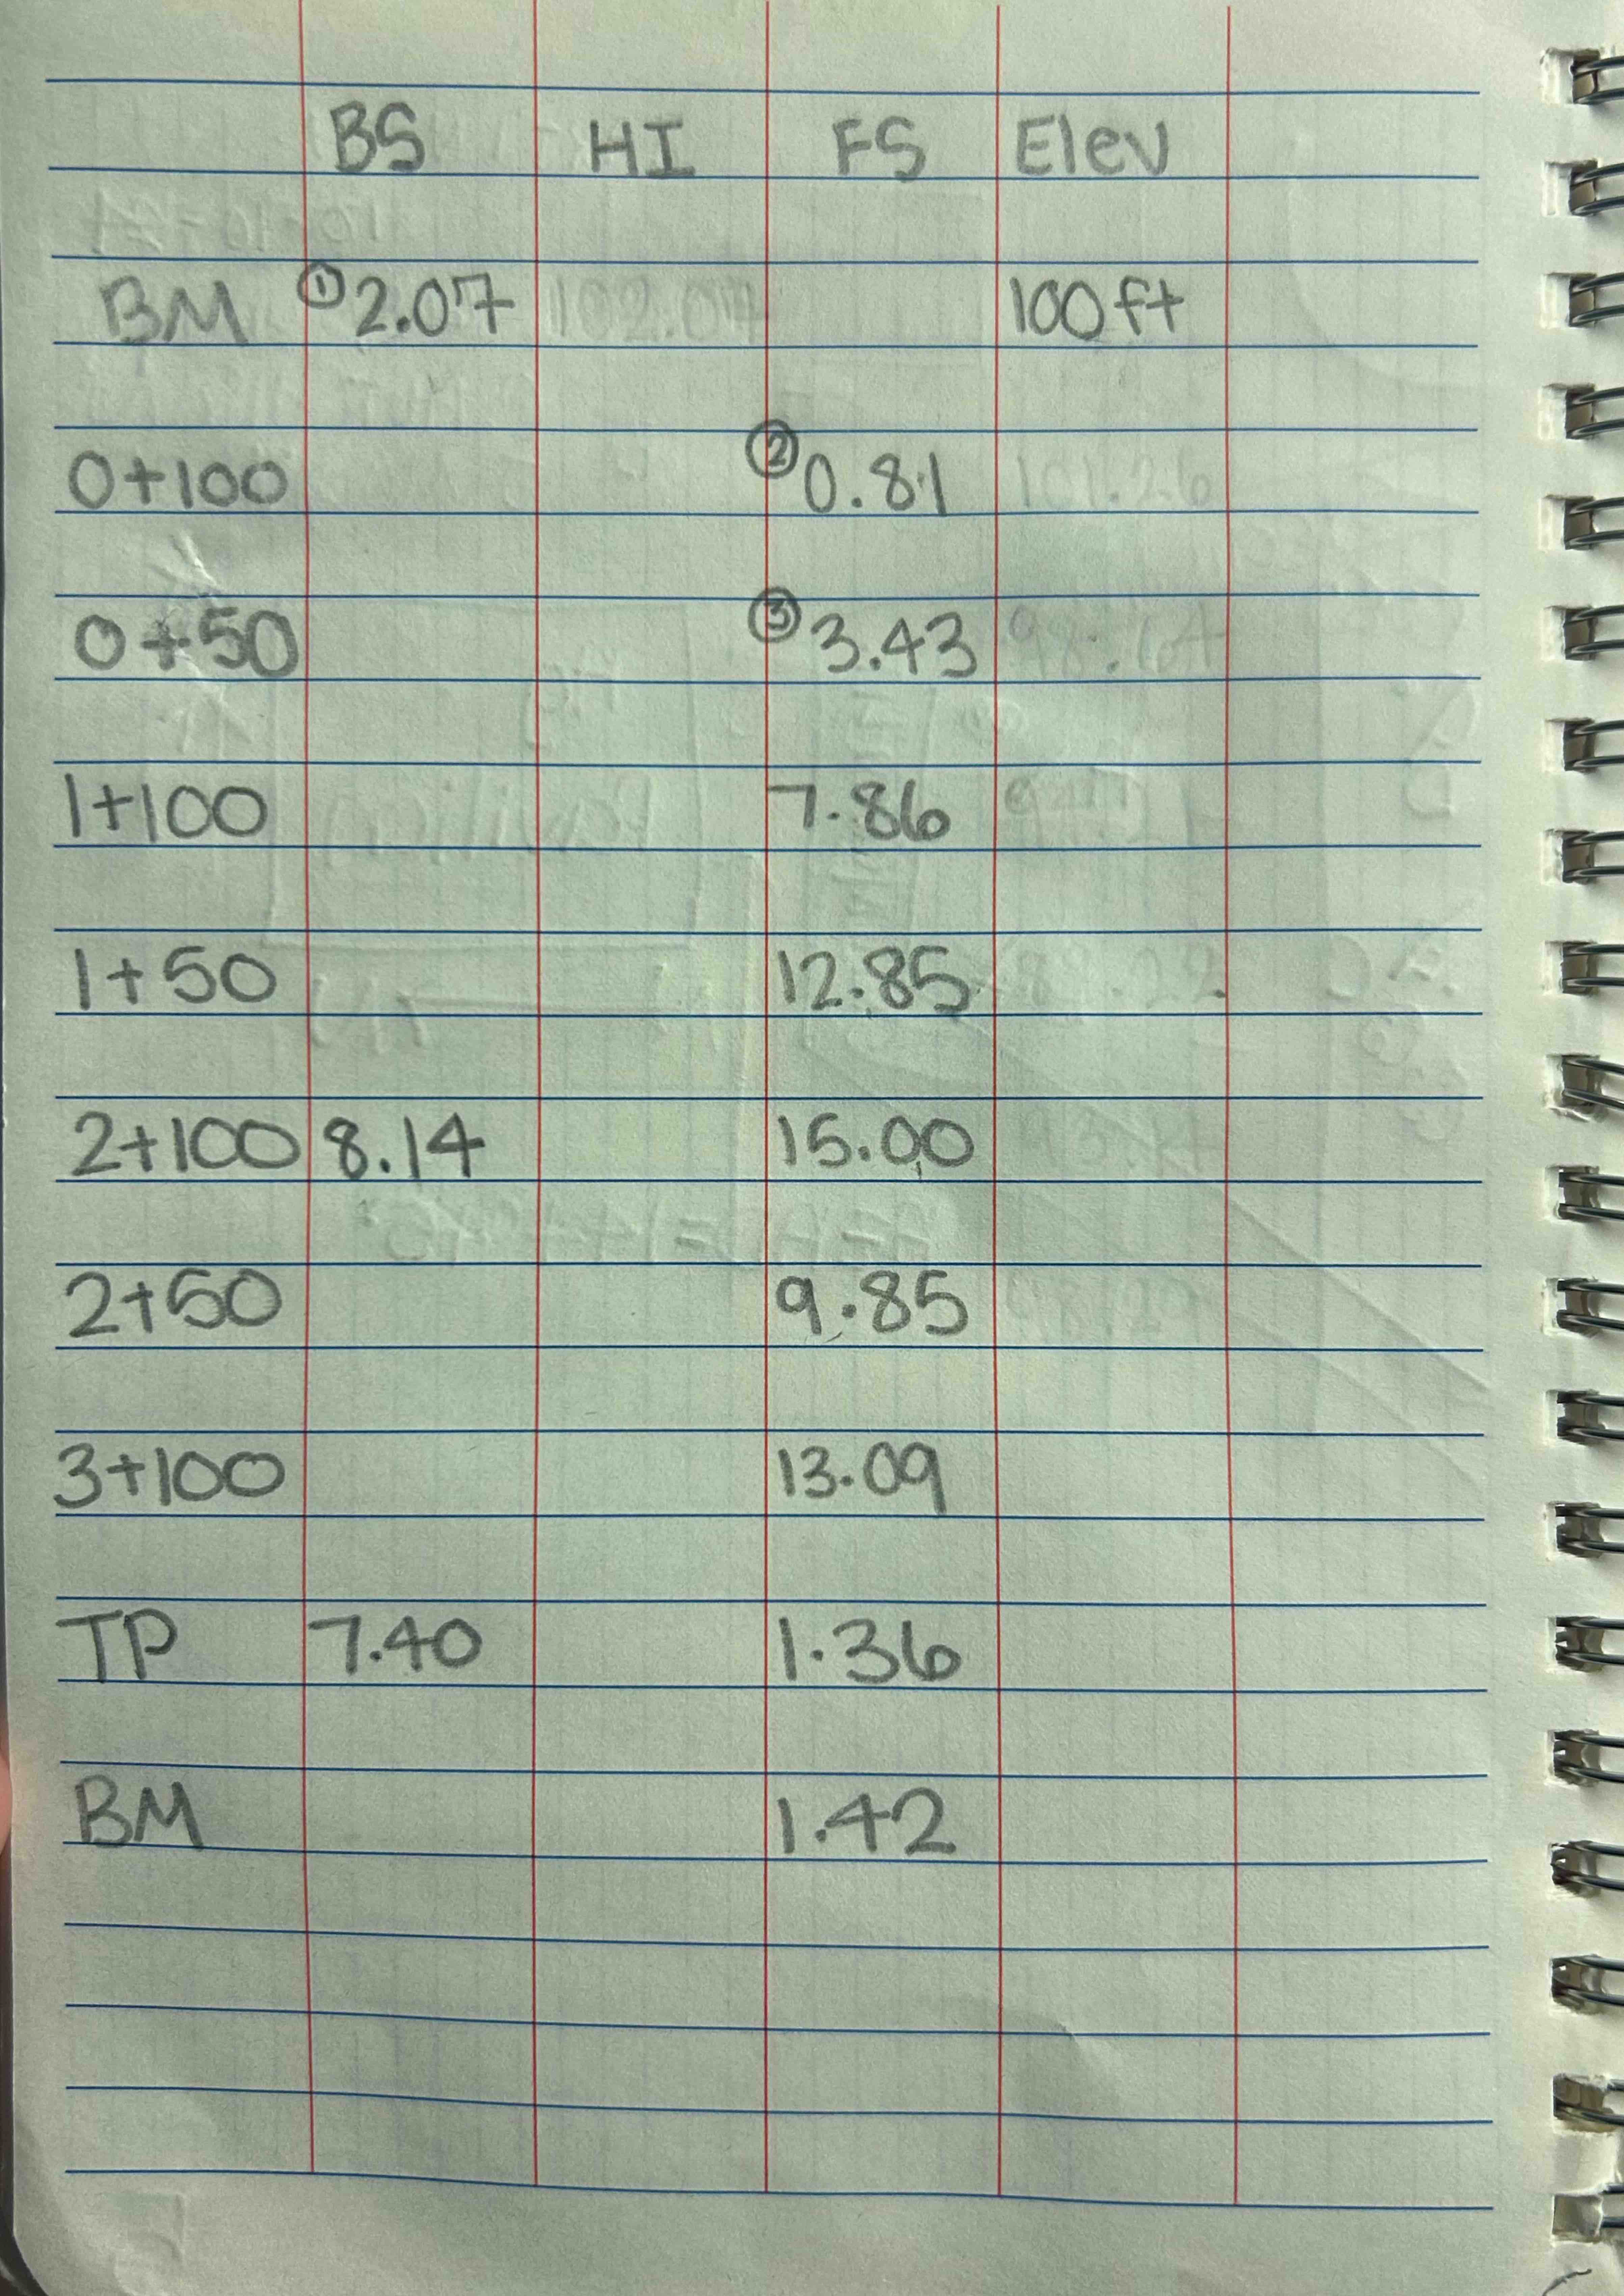 BS HI FS Elev
BM ① 2.07 102.07 100ft
0+100 ② 0.81 101.26
0+50 ③ 3.43 98.64
1+100 7.86
1+50 12.85
2+100 8.14 15.00
2+50 9.85
3+100 13.09
TP 7.40 1.36
BM 1.42